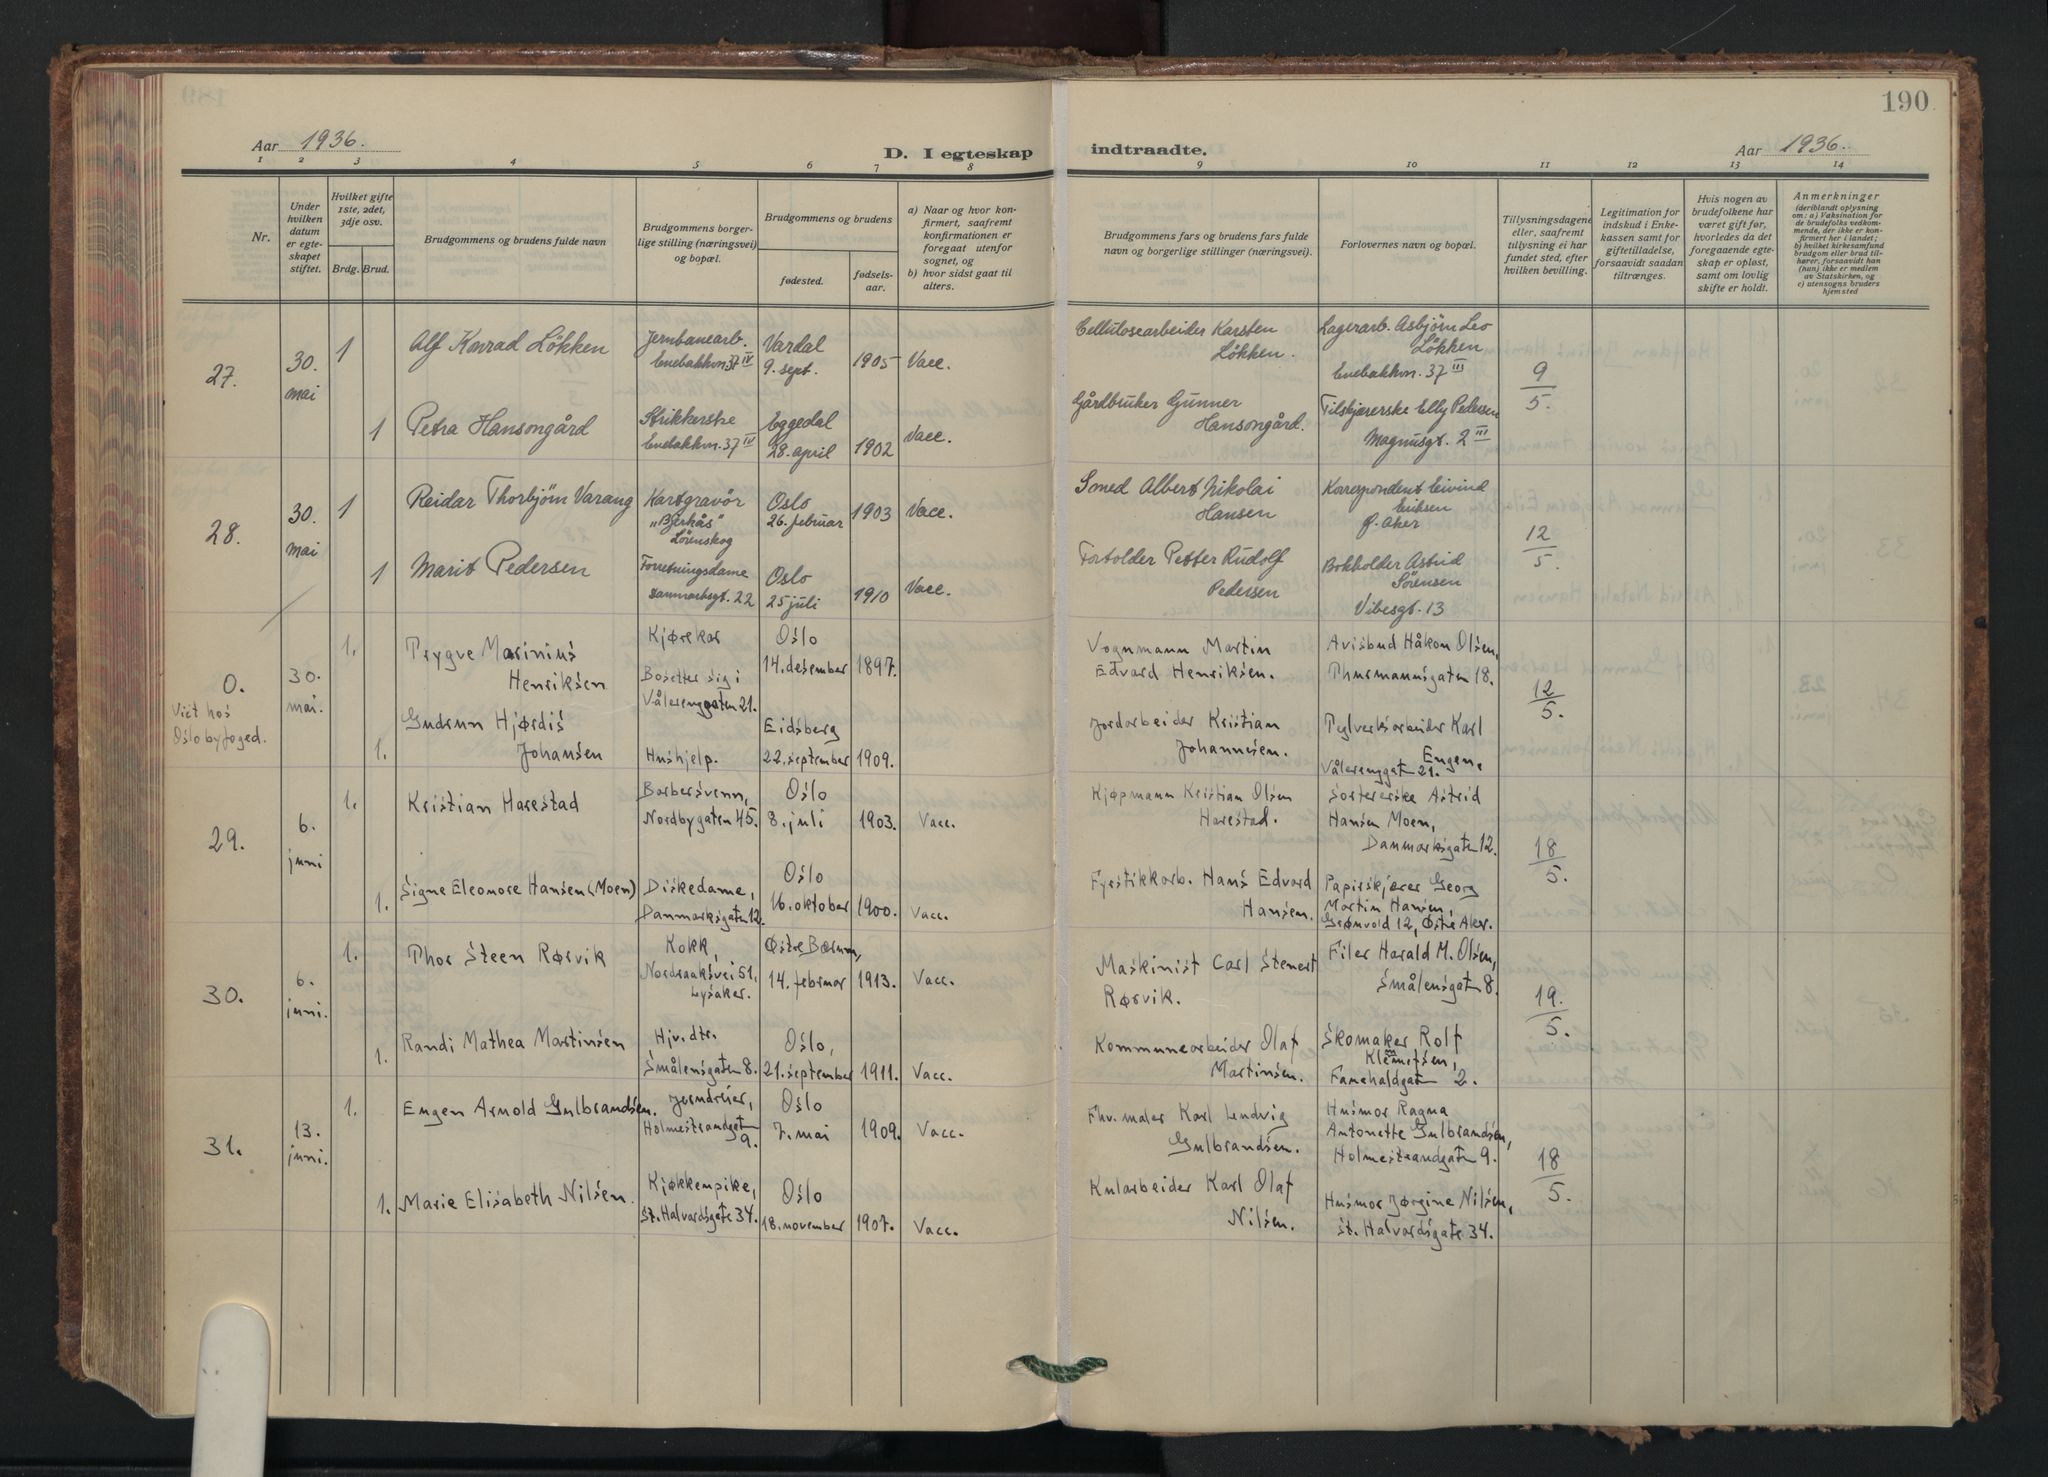 190
Aar 1936.
D. I egteskap indtraadte.
Aar 1936.
1 2 3 4 5 6 7 8 9 10 11 12 13 14
Nr.
Under hvilken datum er egteskapet stiftet.
Hvilket gifte 1ste, 2det, 3dje osv.
Brdg. Brud.
Brudgommens og brudens fulde navn
Brudgommens borgerlige stilling (næringsvei) og bopæl.
Brudgommens og brudens
fødested.
fødselsaar.
a) Naar og hvor konfirmert, saafremt konfirmationen er foregaat utenfor sognet, og
b) hvor sidst gaat til alters.
Brudgommens fars og brudens fars fulde navn og borgerlige stillinger (næringsvei).
Forlovernes navn og bopæl.
Tillysningsdagene eller, saafremt tillysning ei har fundet sted, efter hvilken bevilling.
Legitimation for indskud i Enkekassen samt for giftetilladelse, forsaavidt saadan tiltrænges.
Hvis nogen av brudefolkene har været gift før, hvorledes da det foregaaende egteskap er opløst, samt om lovlig skifte er holdt.
Anmerkninger
(deriblandt oplysning om: a) Vaksination for de brudefolks vedkommende, der ikke er konfirmert her i landet; b) hvilket kirkesamfund brudgom eller brud tilhører, forsaavidt han (hun) ikke er medlem av Statskirken, og c) utensogns bruders hjemsted
27.
30. mai
1
Alf Konrad Løkken
Jernbanearb.
Enebakkvn. 37 IV
Vardal
9. sept.
1905
Vacc.
Cellulosearbeider Karsten
Løkken.
Lagerarb. Asbjørn Leo
Løkken
Enebakkvn. 37 III
9/5.
1
Petra Hansongård
Strikkerske
Enebakkvn. 37 IV
Eggedal
28. april
1902
Vacc.
Gårdbruker Gunner
Hansongård.
Tilskjærerske Elly Pedersen
Magnusgt. 2 III
28.
30. mai
1
Reidar Thorbjørn Varang
Kartgravør
"Bjerkås"
Lørenskog
Oslo
26. februar
1903
Vacc.
Smed Albert Nikolai
Hansen
Korrespondent Eivind
Eriksen
Ø. Aker
12/5.
1
Marit Pedersen
Forretningsdame
Danmarksgt. 22
Oslo
25 juli
1910
Vacc.
Fortolder Petter Rudolf
Pedersen
Bokholder Astrid
Sørensen
Vibesgt. 13
0.
Viet hos
Oslo byfoged.
30. mai.
1.
Trygve Marinius
Henriksen
Kjørekar
Bosetter sig i
Vålerenggaten 21.
Oslo
14. desember
1897.
Vognmann Martin
Edvard Henriksen.
Avisbud Håkon Olsen,
Thurmannsgaten 18.
12/5.
1.
Gudrun Hjørdis
Johansen
Hushjelp.
Eidsberg
22. september
1909.
Jordarbeider Kristian
Johannesen.
Tylverksarbeider Karl
Engen,
Vålerenggat 21.
29.
6. juni
1.
Kristian Harestad
Barbersvenn,
Nordbygaten 45.
Oslo
8. juli
1903.
Vacc.
Kjøpmann Kristian Olsen
Harestad.
Sortererske Astrid
Hansen Moen,
Danmarksgaten 12.
18/5.
1.
Signe Eleonore Hansen (Moen)
Diskedame,
Danmarksgaten 12.
Oslo
16. oktober
1900.
Vacc.
Fyrstikkarb. Hans Edvard
Hansen.
Papirskjærer Georg
Martin Hansen,
Grønvold 12, Østre Aker.
30.
6. juni.
1.
Thor Steen Rørvik
Kokk,
Nordraaksvei 51,
Lysaker.
Østre Bærum,
14. februar
1913.
Vacc.
Maskinist Carl Stenert
Rørvik.
Filer Harald M. Olsen,
Smålensgat 8.
19./5.
1.
Randi Mathea Martinsen
Hjv. dtr.
Smålensgaten 8.
Oslo,
21. september
1911.
Vacc.
Kommunearbeider Olaf
Martinsen.
Skomaker Rolf
Klemetsen,
Fanehaldgat 2.
31.
13. juni.
1.
Eugen Arnold Gulbrandsen.
Jerndreier,
Holmestrandgat
9.
Oslo
7. mai
1909.
Vacc.
Fhv. maler Karl Ludvig
Gulbrandsen.
Husmor Ragna
Antonette Gulbrandsen,
Holmestrandgaten 9.
18/5.
1.
Marie Elisabeth Nilsen.
Kjøkkenpike,
St. Halvardsgate 34.
Oslo
18. november
1907.
Vacc.
Kularbeider Karl Olaf
Nilsen.
Husmor Jørgine Nilsen,
St. Halvardsgate 34.